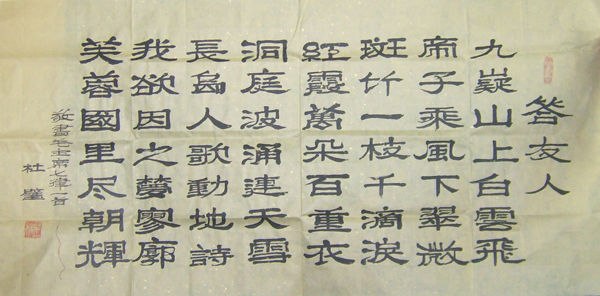 答友人
九嶷山上白雲飛
帝子乘風下翠微
斑竹一枝千滴淚
紅霞萬朵百重衣
洞庭波涌連天雪
長島人歌動地詩
我欲因之夢廖廓
芙蓉國里尽朝輝
敬書毛主席七律一首
杜